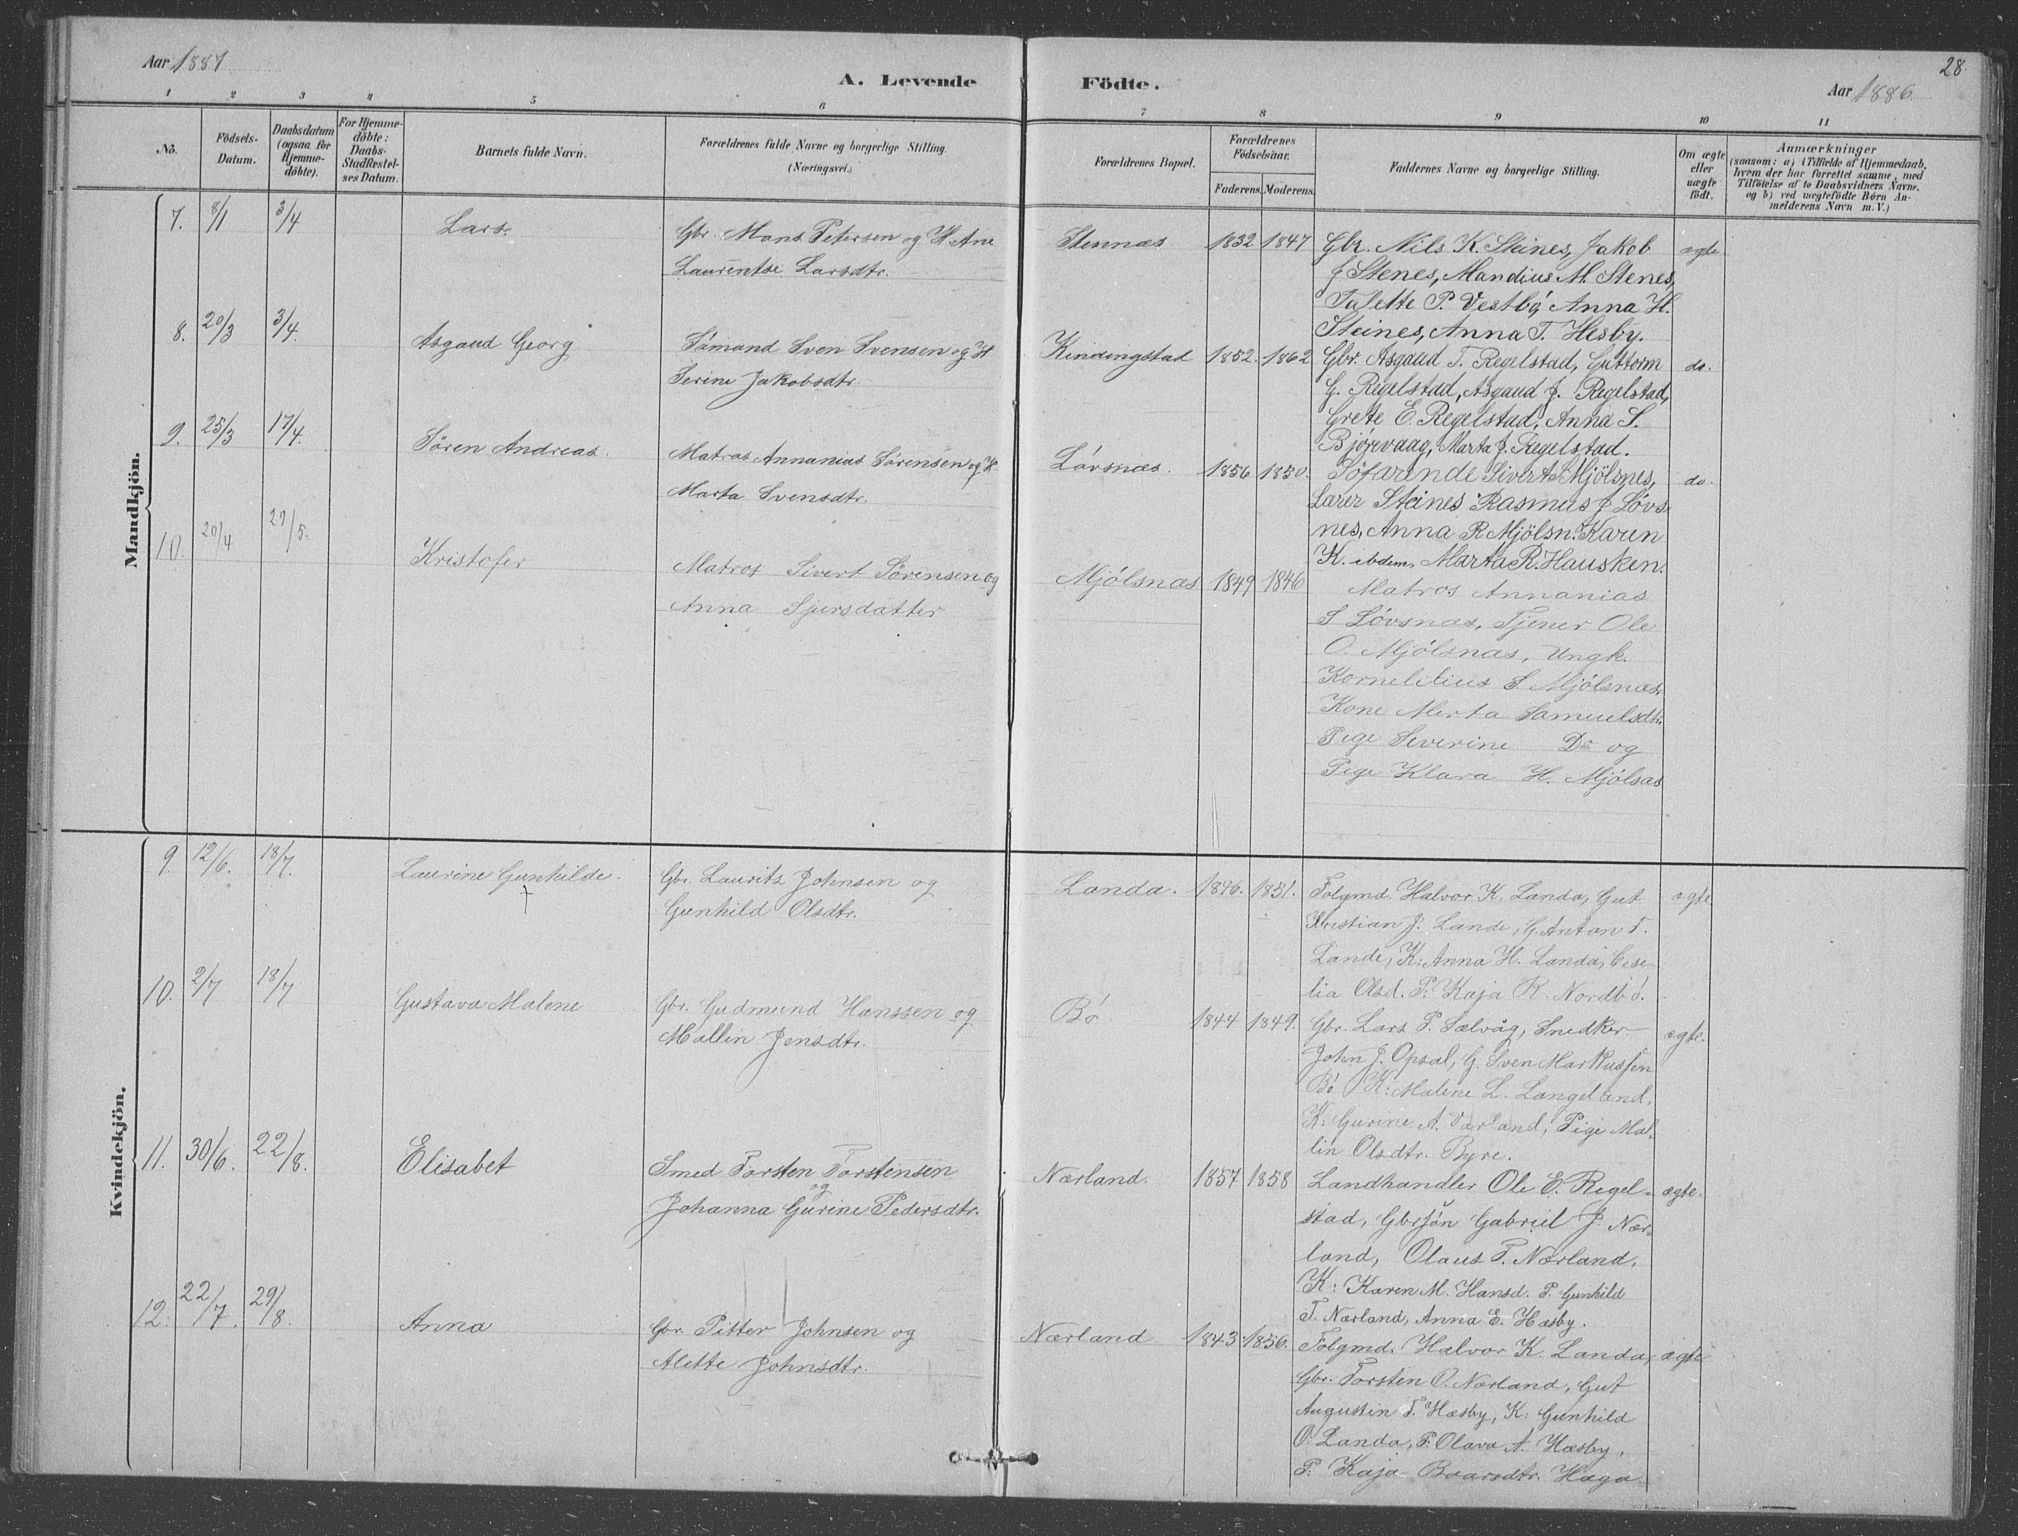 28
Aar 1887
A. Levende Födte.
Aar 1886
1 2 3 4 5 6 7 8 9 10 11
No.
Födsels-Datum.
Daabsdatum (ogsaa for Hjemmedöbte).
For Hjemmedöbte: Daabs-Stadfæstelses Datum.
Barnets fulde Navn.
Forældrenes fulde Navne og borgerlige Stilling. (Næringsvei.)
Forældrenes Bopæl.
Forældrenes Födselsaar.
Faderens. Moderens.
Faddernes Navne og borgerlige Stilling.
Om ægte eller uægte födt.
Anmærkninger
(saasom: a) i Tilfælde af Hjemmedaab, hvem der har forrettet samme, med Tilföielse af to Daabsvidners Navne, og b) ved uægtefödte Börn Anmelderens Navn m. V.)
Mandkjön.
7. 8/1 3/4 Lars. Gbr. Mons Petersen og H. Ane Stennæs 1832 1847 Gbr. Nils K. Steines, Jakob ægte
Laurentse Larsdtr. J Stenes, Mandius M. Stenes,
Talette P. Vestbø, Anna H.
Steines, Anna T. Hesby.
8. 20/3 3/4 Asgaud Georg Sömand Sven Svensen og H Kindingstad 1852. 1862 Gbr. Asgaud T. Regelstad, Guttorm do.
Serine Jakobsdtr. G. Rigelstad, Asgaud J. Regelstad,
Grete E. Regelstad, Anna S.
Bjórevaag, Marta J. Regelstad.
9. 25/3 17/4. Søren Andreas. Matros Annanias Sørensen og H Lóvsnæs. 1856 1850. Söfarende Sivert S Mjölsnes, do
Marta Svensdtr. Lærer Steines Rasmus J Lóvs
nes, Anna R Mjölsn. Karen
K. ibdem, Marta R. Hausken.
10. 20/4 29/5. Kristofer Matros Sivert Sörensen og Mjólsnæs 1849 1846 Matros Annanias
Anna Sjursdatter S Lóvsnæs, Tjener Ole
O. Mjólsnæs, Ungk.
Kornelilius S. Mjólsnæs.
Kone Merta Samuelsdtr.
Pige Severine Do og
Pige Klara H. Mjólsæs
Kvindekjön.
9. 12/6. 18/7. Laurine Gunhilde. Gbr. Laurits Johnsen og Landa. 1846. 1851. Folgmd. Halvor K. Landa, Gut ægte
+ Gunhild Olsdtr. Kristian J. Lande, G. Anton T.
Lande, K: Anna H. Landa, Cese
lia Olsd. P. Kaja R. Nordbö.
10. 2/7 18/7 Gustava Malene Gbr. Gudmund Hanssen og Bó 1844 1849. Gbr. Lars P. Sælvåg, Snedker ægte.
Mallin Jensdtr. John J. Opsal, G. Sven Markussen
Bö K: Malene L. Langeland,
K: Gurine A. Varland, Pige Mal-
lin Olsdtr. Byre.
11. 30/6. 22/8. Elisabet Smed Torsten Torstensen Nærland. 1857 1858 Landhandler Ole E. Regel- ægte.
og
Johanna Gurine Pedersdtr. stad, Gbrsön Gabriel J. Nær-
land, Olaus T. Nærland.
K: Karen M. Hansd. P. Gunhild
T. Nærland, Anna E. Hæsby.
12. 22/7. 29/8. Anna Gbr. Pitter Johnsen og Nærland 1843. 1856. Folgmd. Halvor K. Landa, ægte
Alette Johnsdtr. Gbr. Torsten O. Nærland, Gut
Augustin T. Hæsby, K: Gunhild
O. Landa, P. Olava A. Hæsby,
P. Kaja Baarsdtr. Haga.